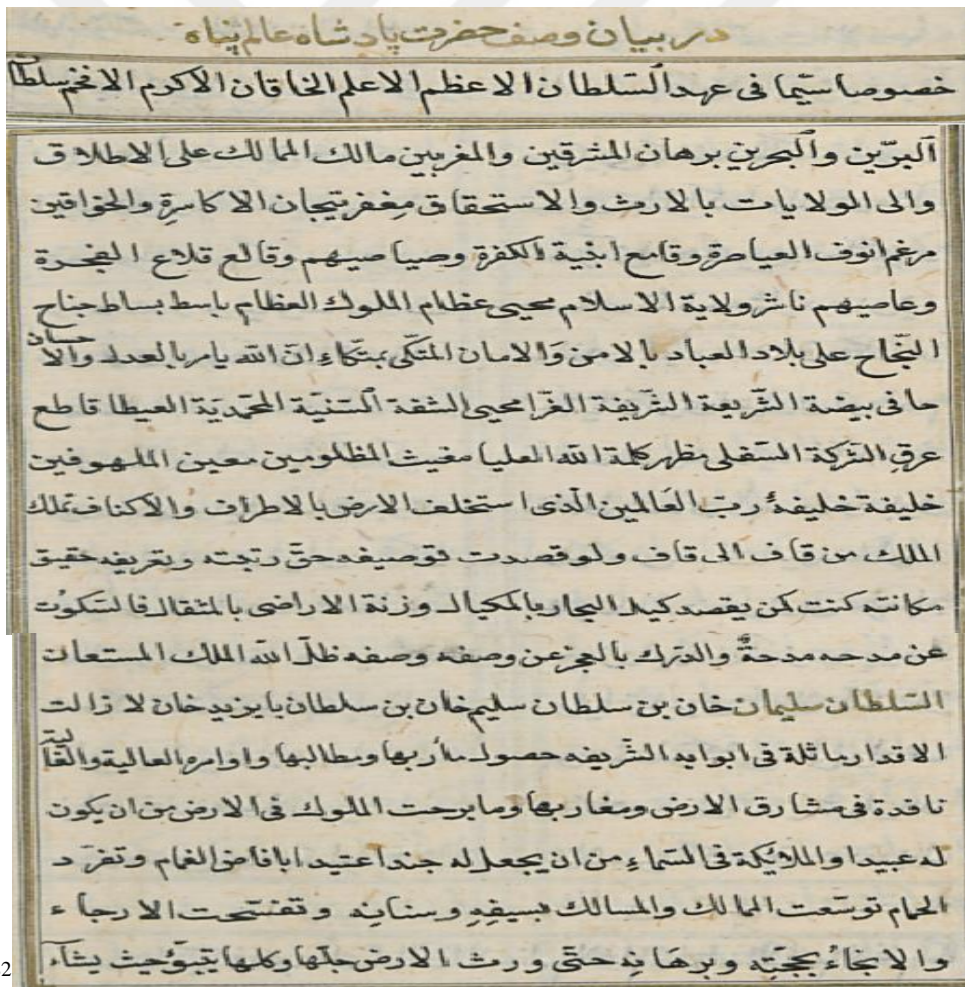 در بیان وصف حضرت پادشاه عالم پناه
خصوصا سیّما فی عهد السّلطان الاعظم الاعلم الخاقان الاکرم الافخم سلطان
البرّین والبحرین برهان المشرقین والمغربین مالك الممالك علی الاطلاق
والی الولایات بالارث والاستحقاق مغفر تیجان الاکاسرة والخواقین
مرغم انوف العیاصرة وقامع ابنیة الکفرة وصیاصیهم وقالع قلاع الفجرة
وعاصیهم ناشر ولایة الاسلام محیی عظام الملوك العظام باسط بساط جناح
النّجاح علی بلاد العباد بالامن والامان المتّکی بمتّکاء انّ الله یامر بالعدل والاحسان
حافی بیضة الشّریعة الشّریفة الغرا محیی الشفة السّنیّة المحمّدیّة العیطا قاطع
عرق الشرکة السّفلی مظهر کلمة الله العلیا مغیث المظلومین معین الملهوفین
خلیفة خلیفۀ ربّ العالمین الّذی استخلف الارض بالاطراف والاکناف تملك
الملك من قاف الی قاف ولو قصدت توصیفه حقّ رتبته وتعریفه حقیق
مکانته کنت کمن یقصد کیل البحار بالمکیال وزنة الاراضی بالمثقال فالسّکوت
عن مدحه مدحةٌ والترك بالعجز عن وصفه وصفه ظلّ الله الملك المستعان
السّلطان سلیمان خان بن سلطان سلیم خان بن سلطان بایزید خان لا زالت
الاقدار ماثلة فی ابوابه الشّریفه حصول مأربها ومطالبها واوامره العالیة والقا
نافدة فی مشارق الارض ومغاربها وما برحت الملوك فی الارض من ان یکون
له عبیدا والملائکة فی السّماء من ان یجعل له جندا عتیدا بافاض الغمام وتغرّد
الحمام توسّعت الممالك والمسالك بسیفه وسنانه وتفسّحت الارجاء
والانجاء بحجّته وبرهانه حتّی ورث الارض جلّها وکلها یتبوّء حیث یشاء
2